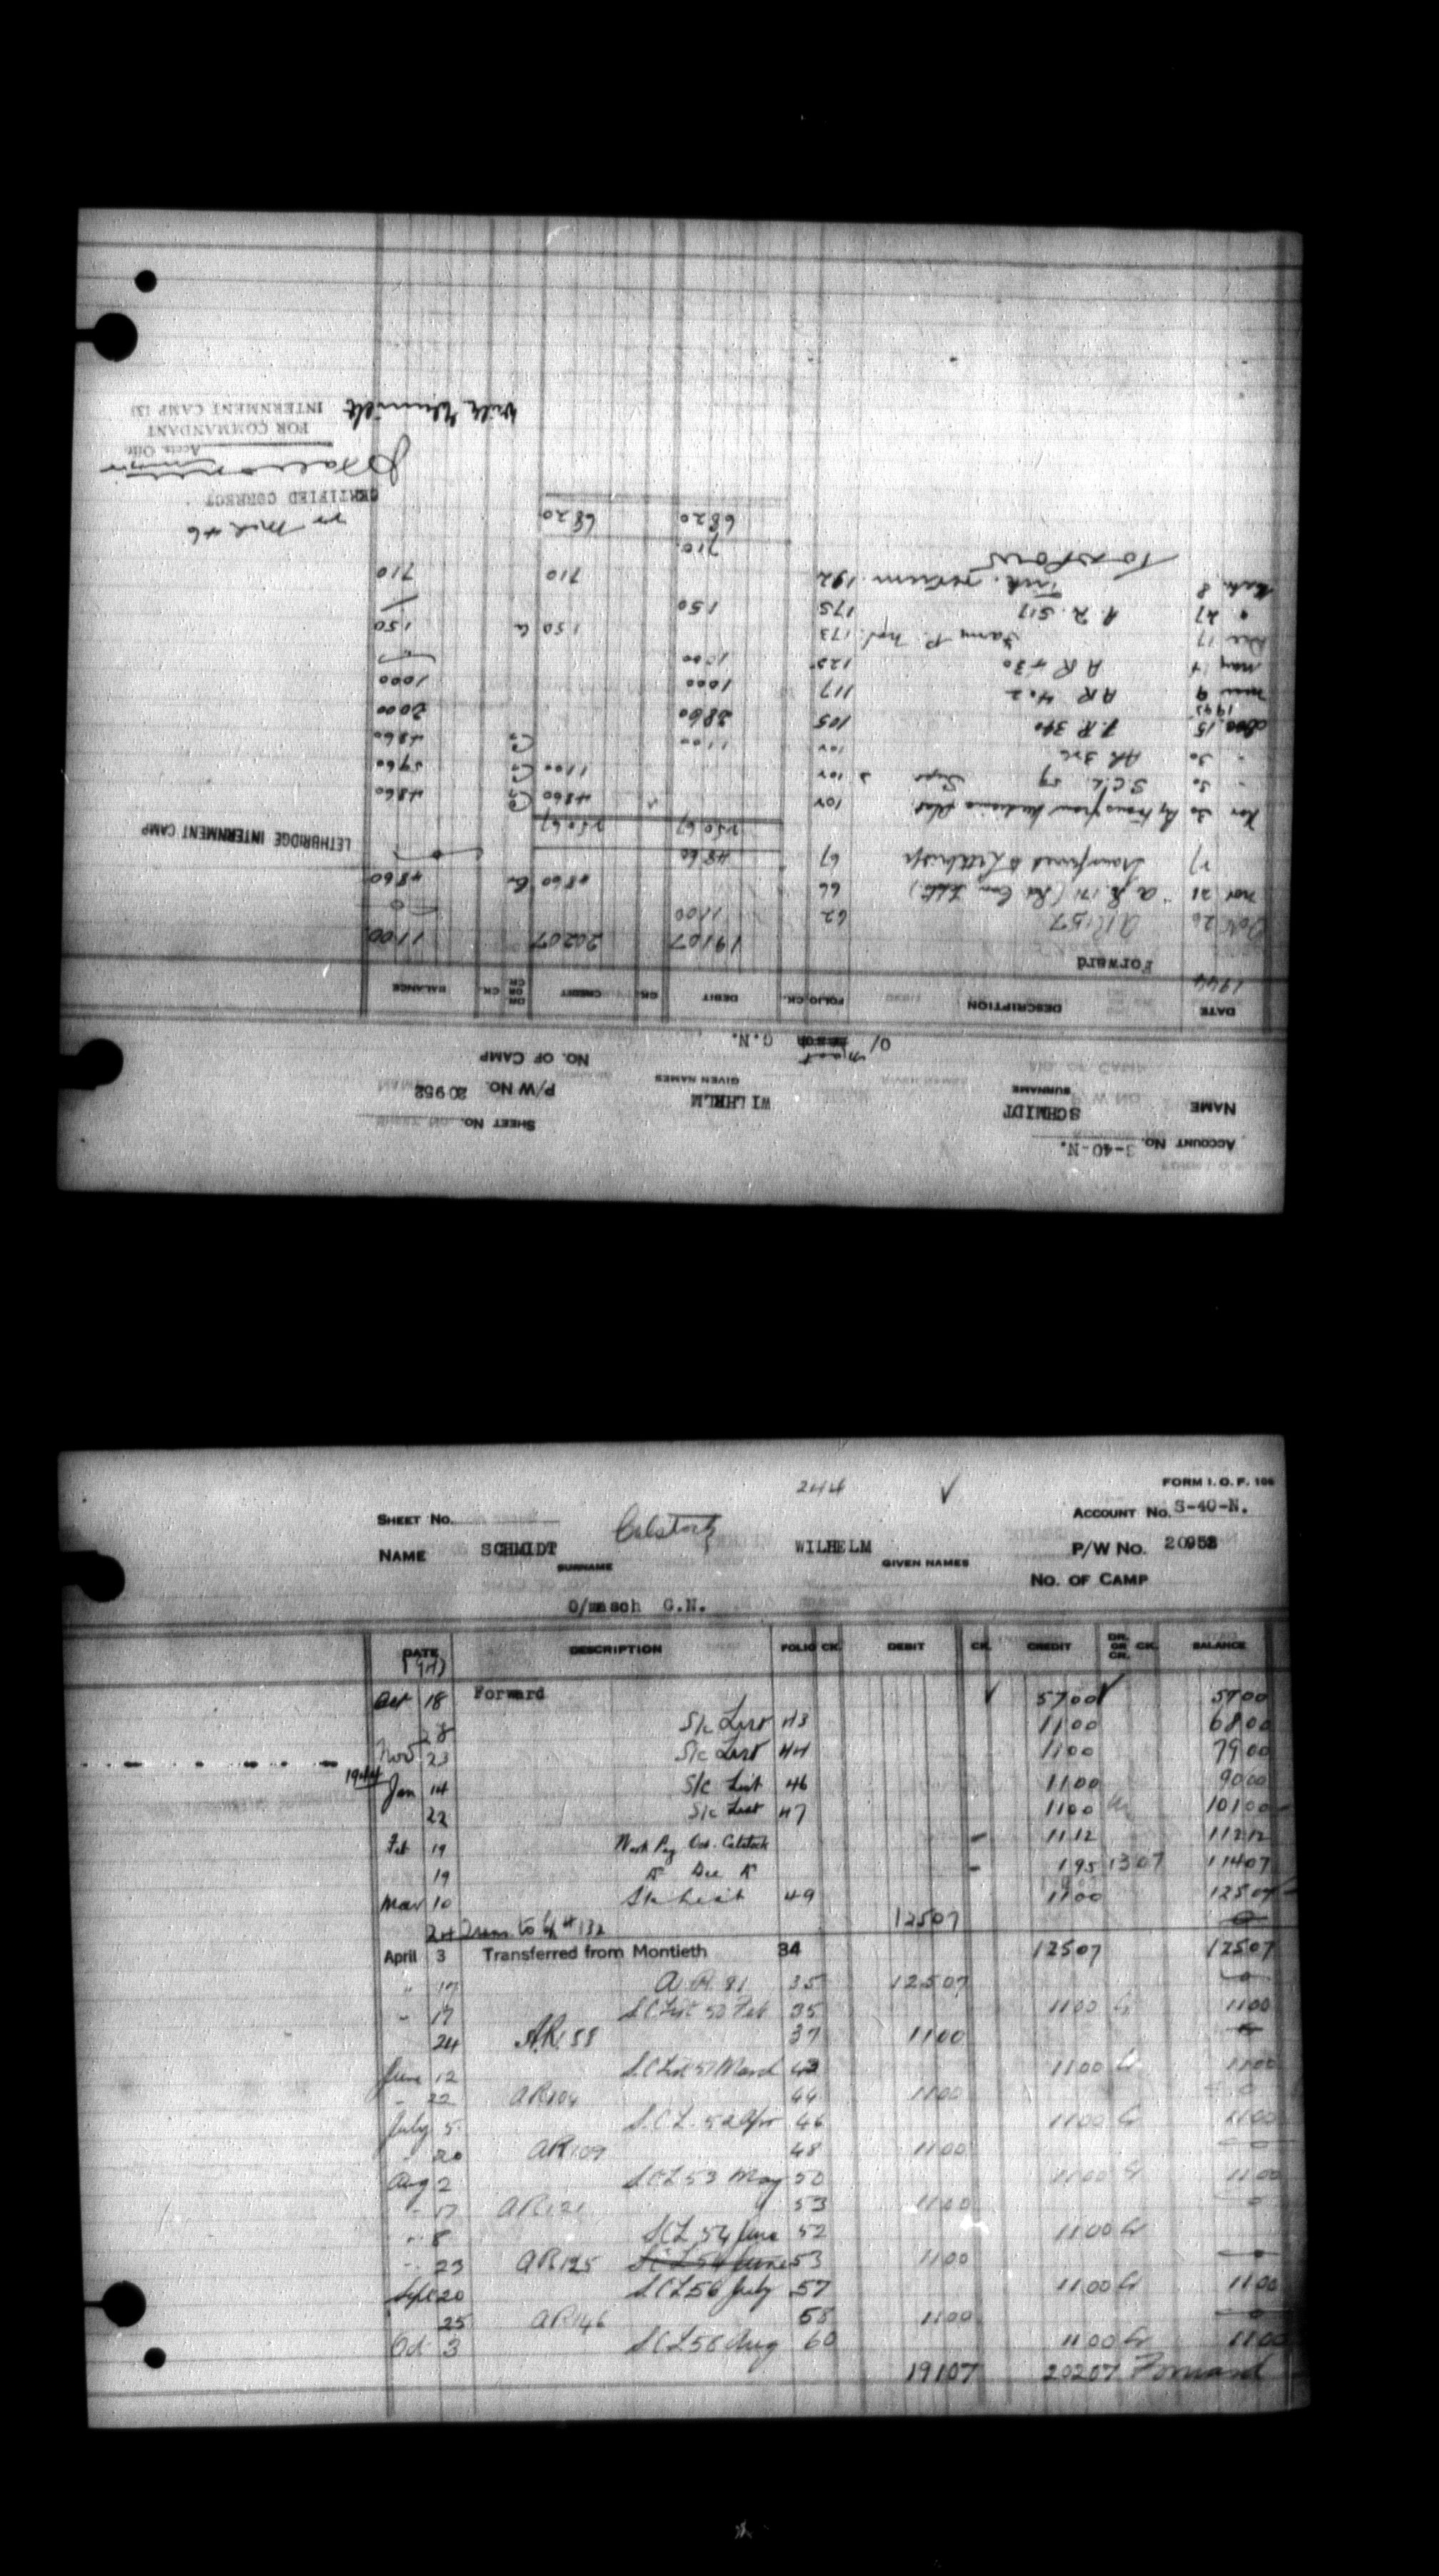 ACCOUNT No. S-40-N. SHEET No.
NAME SCHMIDT WILHELM P/W No. 20952
SURNAME GIVEN NAMES
NO. OF CAMP
O/ G.N.
DATE DESCRIPTION FOLIO CK. DEBIT CK. CREDIT DR. OR CR. CK. BALANCE
1944
Forward 19107 20207 1100
20 AR157 62 1100 0
Nov 21 A.R. 171 66 4860 Cr 4860
Transferred to Lethbridge 67 4860 0
25067 25067
LETHBRIDGE INTERNMENT CAMP
Nov 30 By Trans from 102 4860 Cr 4860
" 30 S.C.L. 59 102 1100 Cr 5960
" 30 AR 102 1100 Cr 4860
15 A.R. 340 105 2860 2000
1945
9 AR 402 117 1000 1000
May 4 AR 430 125 1000
Dec 17 173 150 Cr 150
" 27 A.R. 517 175 150
8 192 710 710
To 710
6820 6820
CERTIFIED CORRECT
Accts. Offr.
FOR COMMANDANT
INTERNMENT CAMP 133
Wilh Schmidt
244 FORM I. O. P. 106
SHEET No. Calstock ACCOUNT No. S-40-N.
NAME SCHMIDT WILHELM P/W No. 20952
SURNAME GIVEN NAMES
NO. OF CAMP
O/masch G.N.
DATE DESCRIPTION FOLIO CK. DEBIT CK. CREDIT DR. OR CR. CK. BALANCE
1943
Oct 18 Forward 5700 5700
28 S/c List 43 1100 6800
Nov 23 S/c List 44 1100 7900
1944
Jan 14 S/c List 46 1100 9000
22 S/c List 47 1100 10100
Feb 19 Work Pay Oct. Calstock 1112 11212
19 Dec 195 1307 11407
Mar 10 S/c List 49 1100 12507
24 Trans to # 132 12507 0
April 3 Transferred from Montieth 34 12507 12507
" 17 A.R. 81 35 12507 0
" 17 S.C List 50 Feb 35 1100 Cr 1100
24 A.R. 88 37 1100 0
June 12 S.C List 51 March 43 1100 Cr 1100
" 22 AR104 44 1100 0
July 5 S.C.L. 52 Apr 46 1100 Cr 1100
" 20 AR109 48 1100 0
Aug 2 S.C.L 53 May 50 1100 Cr 1100
" 17 AR121 53 1100 0
" 8 S.C.L 54 June 52 1100 Cr
" 23 AR125 S.C.L 54 June 53 1100 0
Sept 20 S.C.L 56 July 57 1100 Cr 1100
25 AR146 58 1100 0
Oct 3 S.C.L 58 Aug 60 1100 Cr 1100
19107 20207 Forward